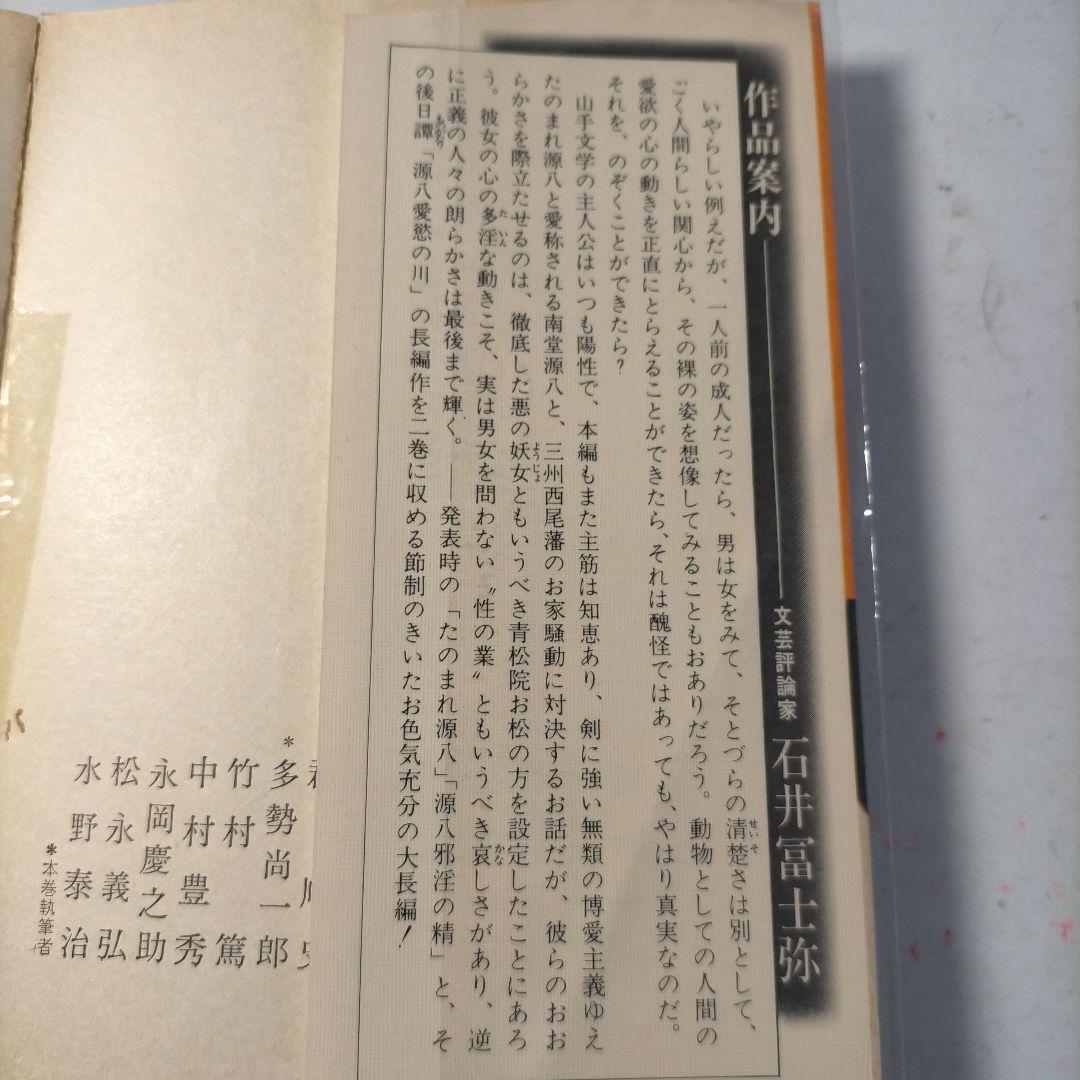 作品案内――文芸評論家 石井冨士弥
いやらしい例えだが、一人前の成人だったら、男は女をみて、そとづらの清楚さは別として、
ごく人間らしい関心から、その裸の姿を想像してみることもおありだろう。動物としての人間の
愛欲の心の動きを正直にとらえることができたら、それは醜怪ではあっても、やはり真実なのだ。
それを、のぞくことができたら?
山手文学の主人公はいつも陽性で、本編もまた主筋は知恵あり、剣に強い無類の博愛主義ゆえ
たのまれ源八と愛称される南堂源八と、三州西尾藩のお家騒動に対決するお話だが、彼らのおお
らかさを際立たせるのは、徹底した悪の妖女ともいうべき青松院お松の方を設定したことにあろ
う。彼女の心の多淫な動きこそ、実は男女を問わない〝性の業〟ともいうべき哀しさがあり、逆
に正義の人々の朗らかさは最後まで輝く。――発表時の「たのまれ源八」「源八邪淫の精」と、そ
の後日譚「源八愛慾の川」の長編作を二巻に収める節制のきいたお色気充分の大長編!
*多勢尚一郎
竹村 篤
中村豊秀
永岡慶之助
松永義弘
水野泰治
*本巻執筆者